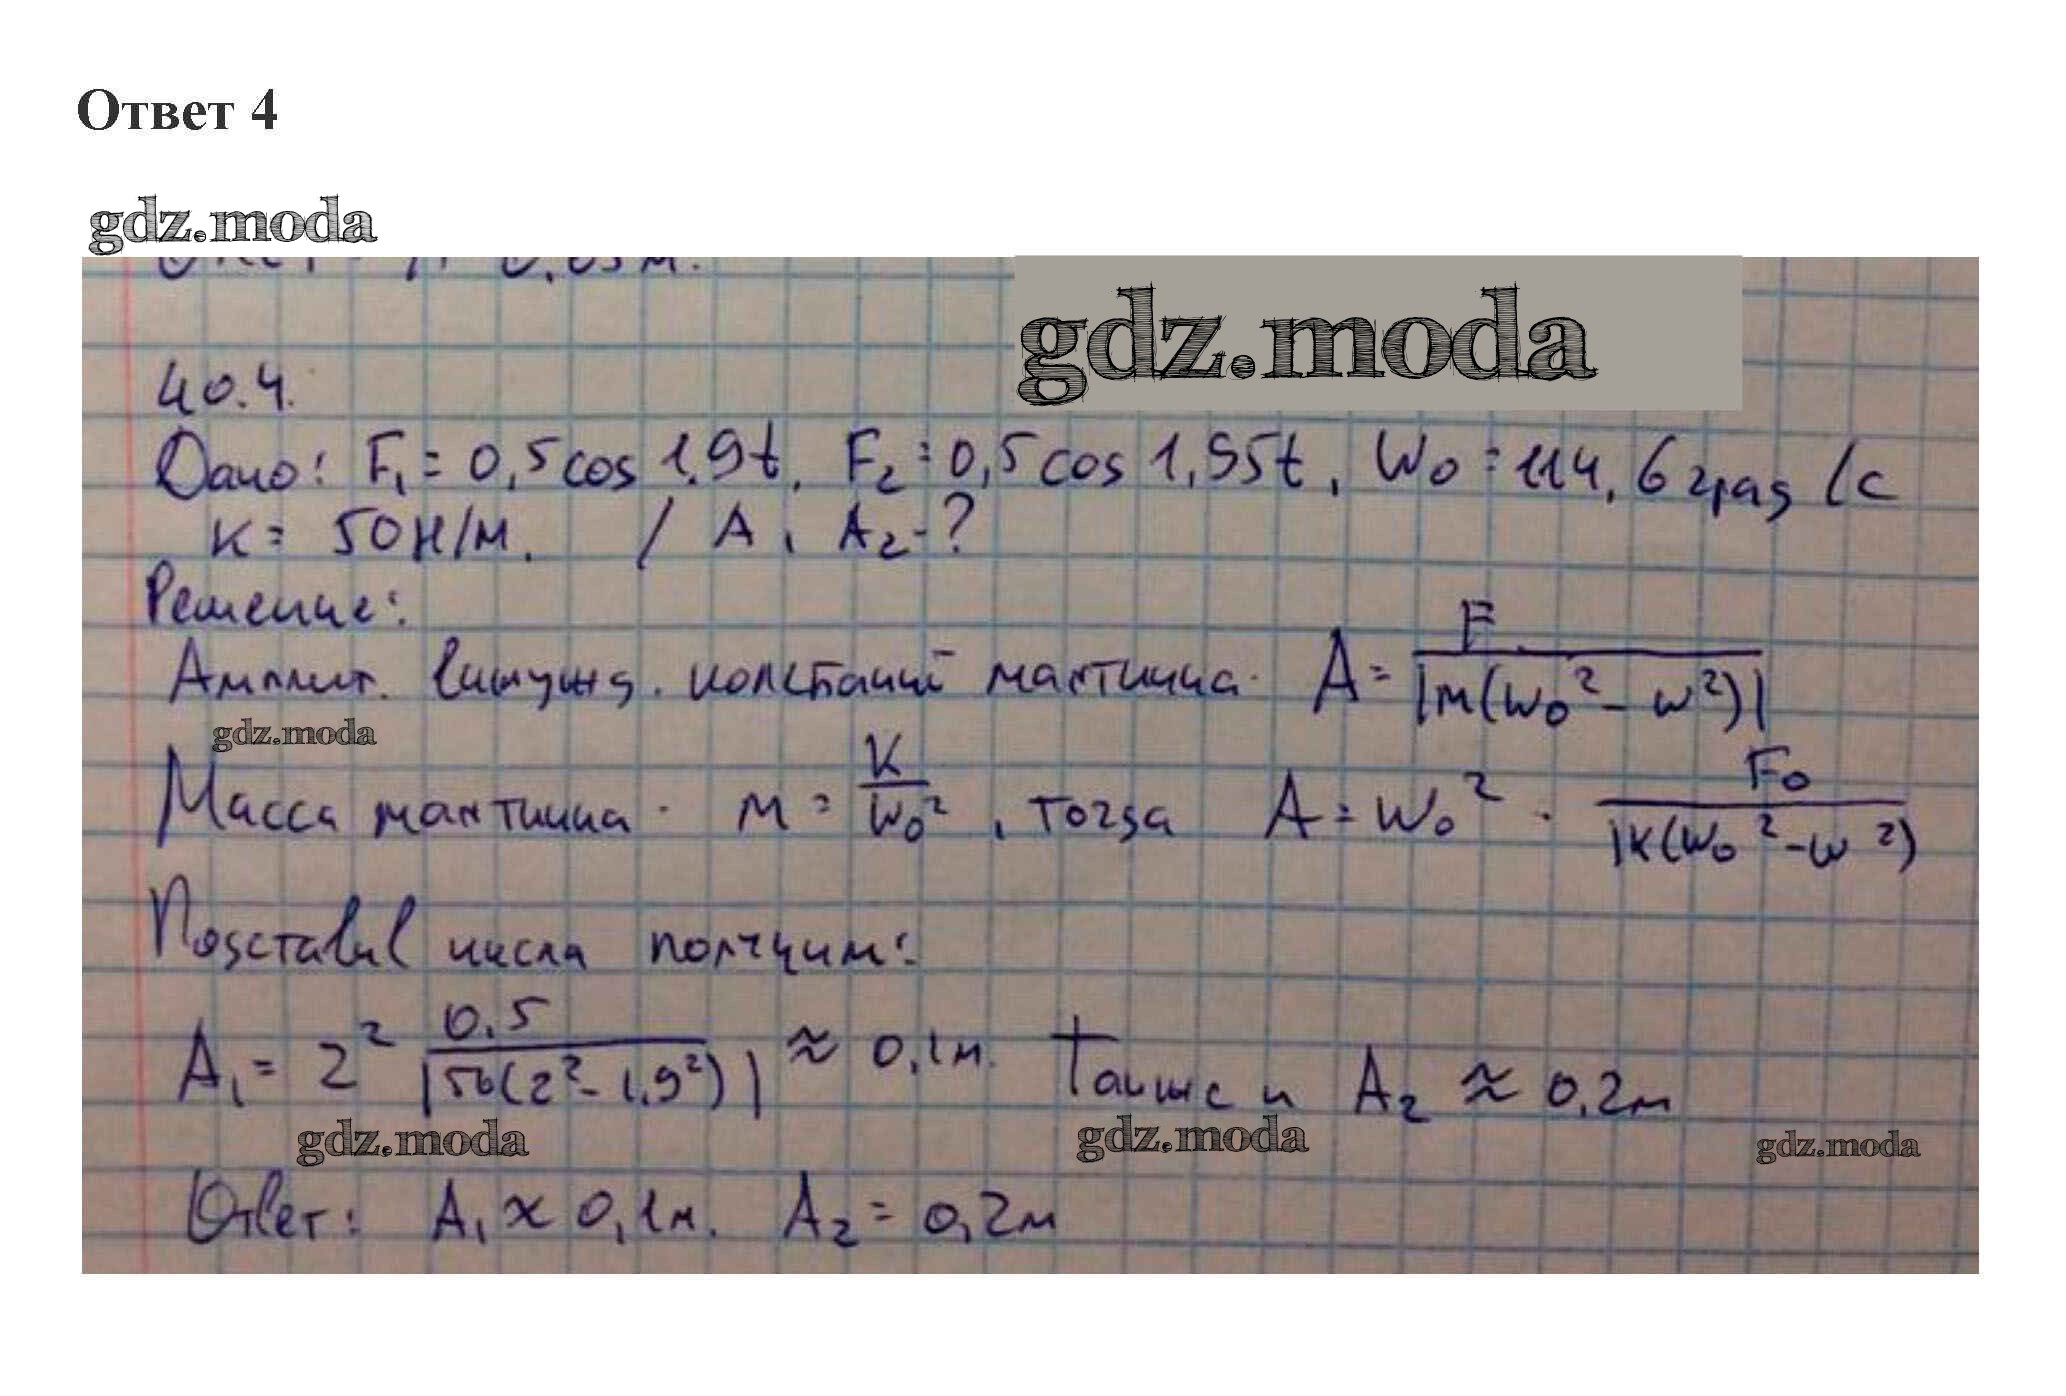 Ответ 4
gdz.moda
gdz.moda
40.4.
Дано: F₁ = 0,5 cos 1,9t, F₂ = 0,5 cos 1,95t, W₀ = 114,6 град/с
K = 50 Н/м. / A, A₂ - ?
Решение:
Амплит. вынужд. колебаний маятника. A = F / |м(W₀² - W²)|
gdz.moda
Масса маятника. м = K / W₀², тогда A = W₀² · F₀ / |K(W₀² - W²)
Подставив числа получим:
A₁ = 2² 0.5 / |50(2² - 1,9²)| ≈ 0,1м. Также и A₂ ≈ 0,2м
gdz.moda gdz.moda gdz.moda
Ответ: A₁ ≈ 0,1м. A₂ = 0,2м